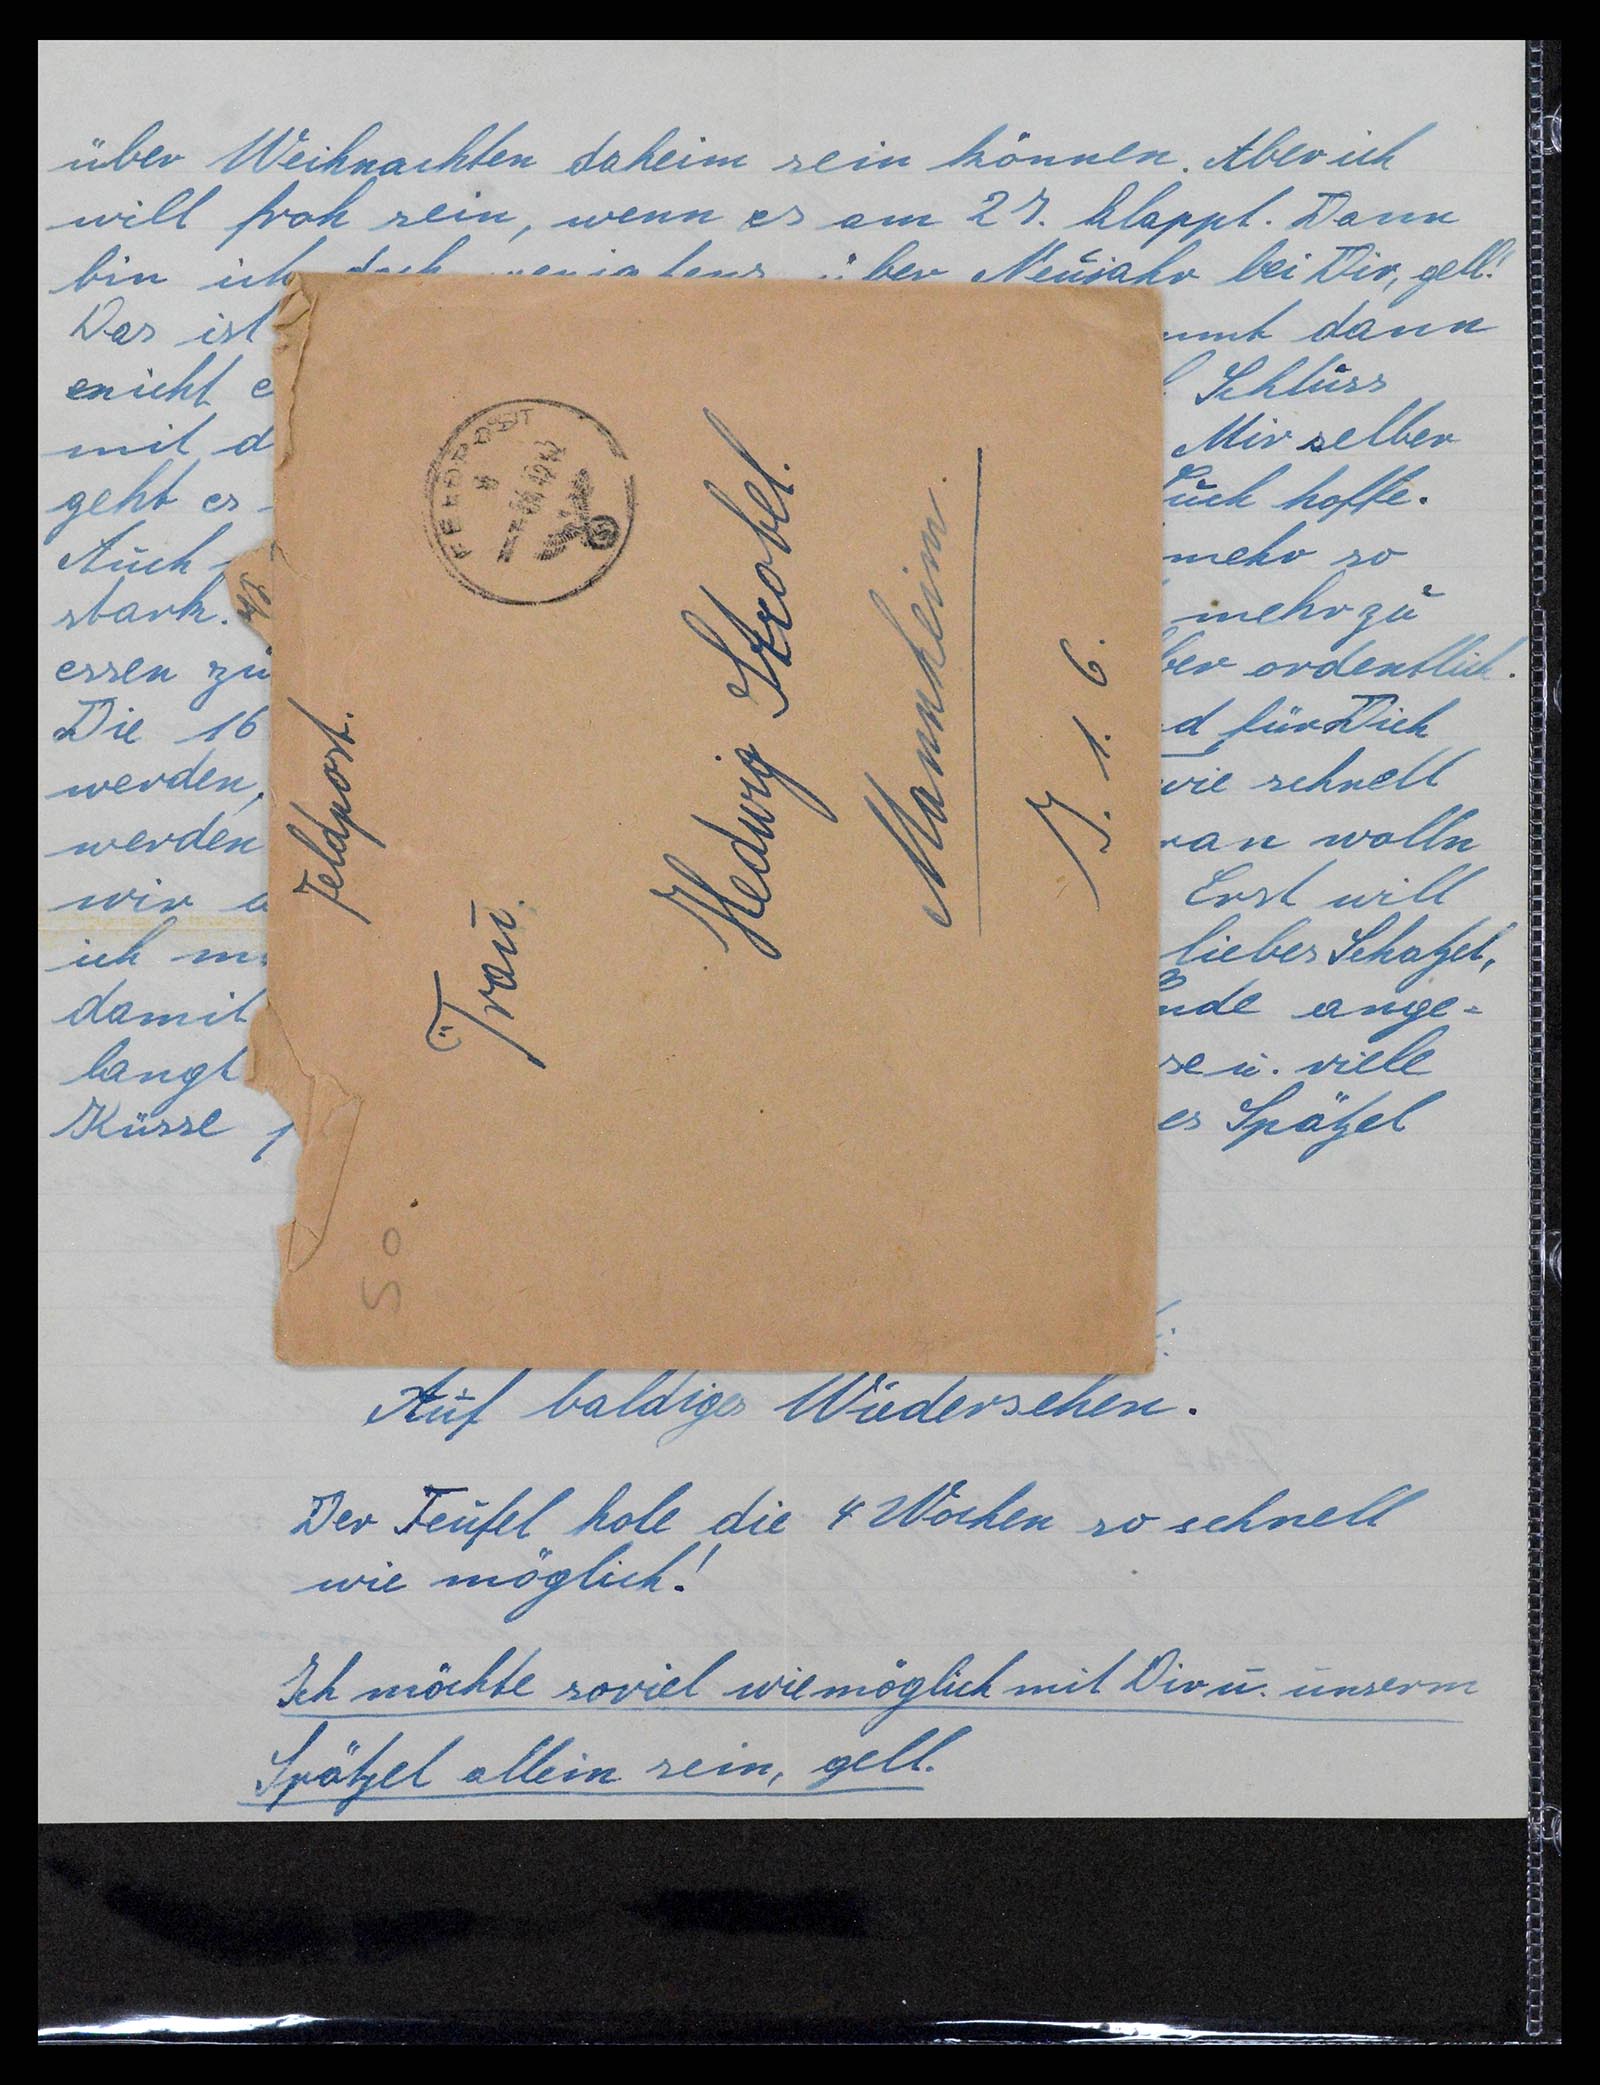 über Weihnachten daheim sein können. Aber ich
will froh sein, wenn es am 27. klappt. Dann
bin ich doch wenigstens über Neujahr bei Dir, gell!
Das ist
dann
nicht
Schluss
mit d
Mir selber
geht es
Euch hoffe.
Auch
mehr so
stark.
mehr zu
essen zu
ordentlich.
Die 16
für Dich
werden,
wie schnell
werden
ran wolln
wir a
Erst will
ich
liebes Schatzel,
damit
Ende ange-
langt
u. viele
Küsse
es Spätzel
Feldpost.
FELDPOST
Frau
Hedwig Strobel.
Mannheim.
J. 1. 6.
50.
Auf baldiges Wiedersehen.
Der Teufel hole die 4 Wochen so schnell
wie möglich!
Ich möchte soviel wie möglich mit Dir u. unserm
Spätzel allein sein, gell.